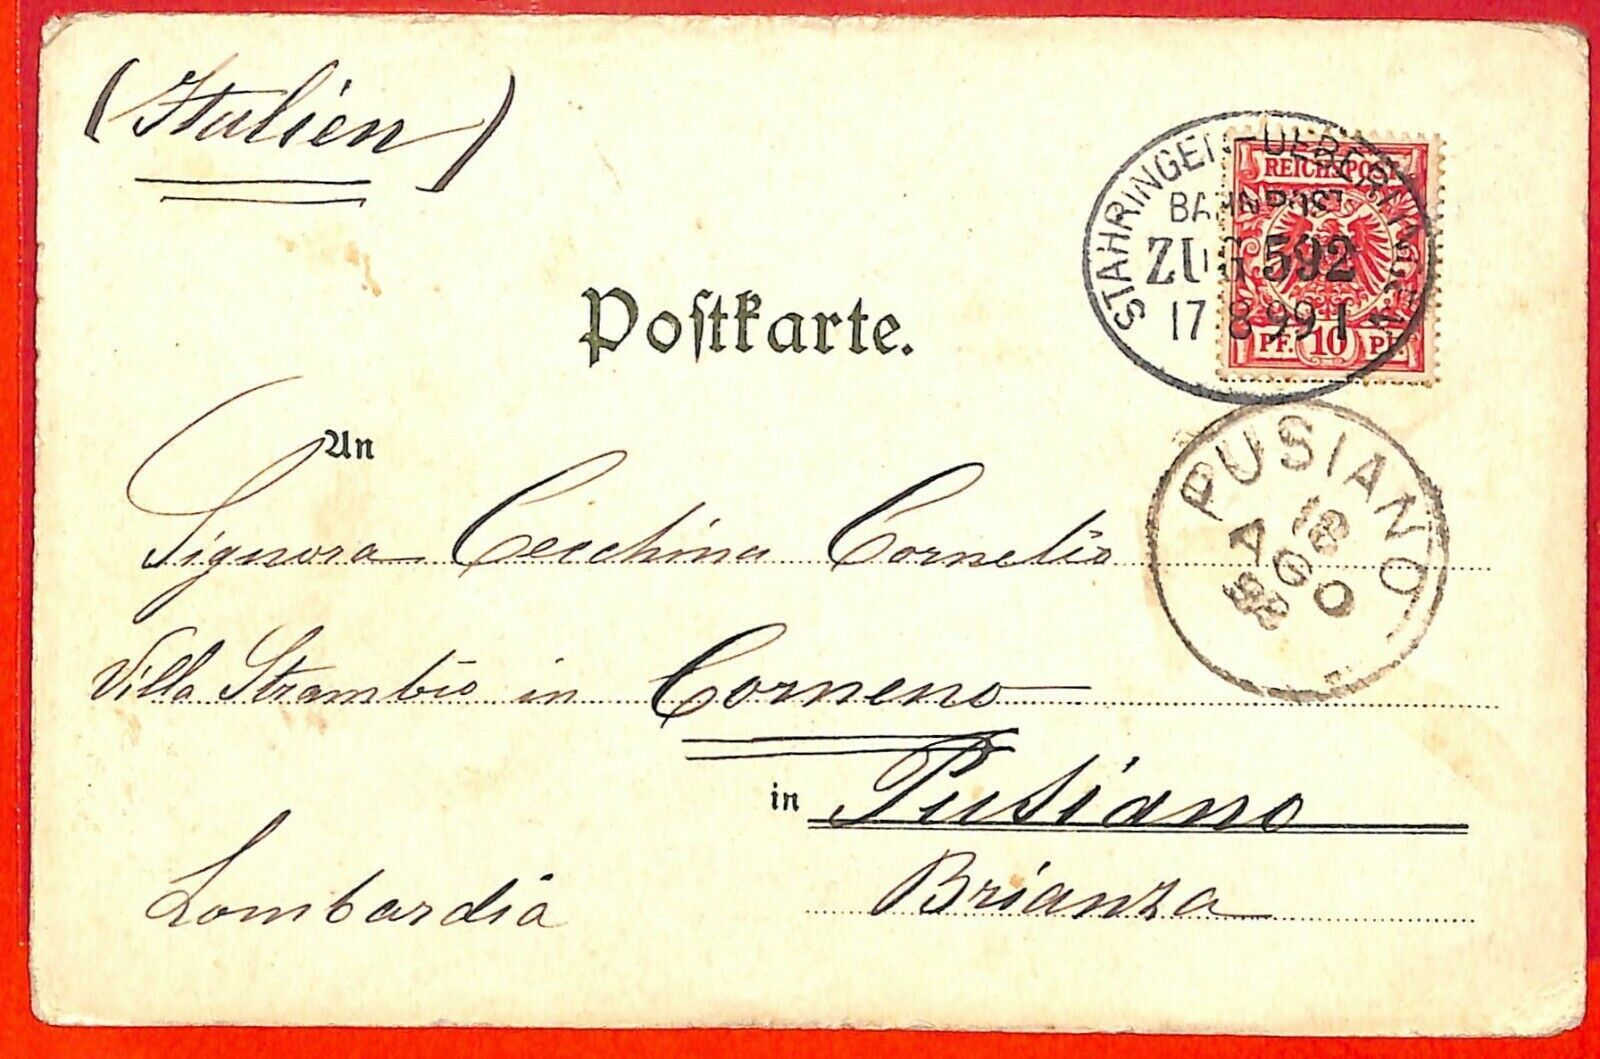 (Italien)
STAHRINGEN-UEBERLINGEN
BAHNPOST
ZUG 592
17 8 99 I
REICHSPOST
PF. 10 PF.
Postkarte.
An
PUSIANO
18
AGO
99
Signora Cecchina Cornelio
Villa Strambio in Corneno
in Pusiano
Brianza
Lombardia